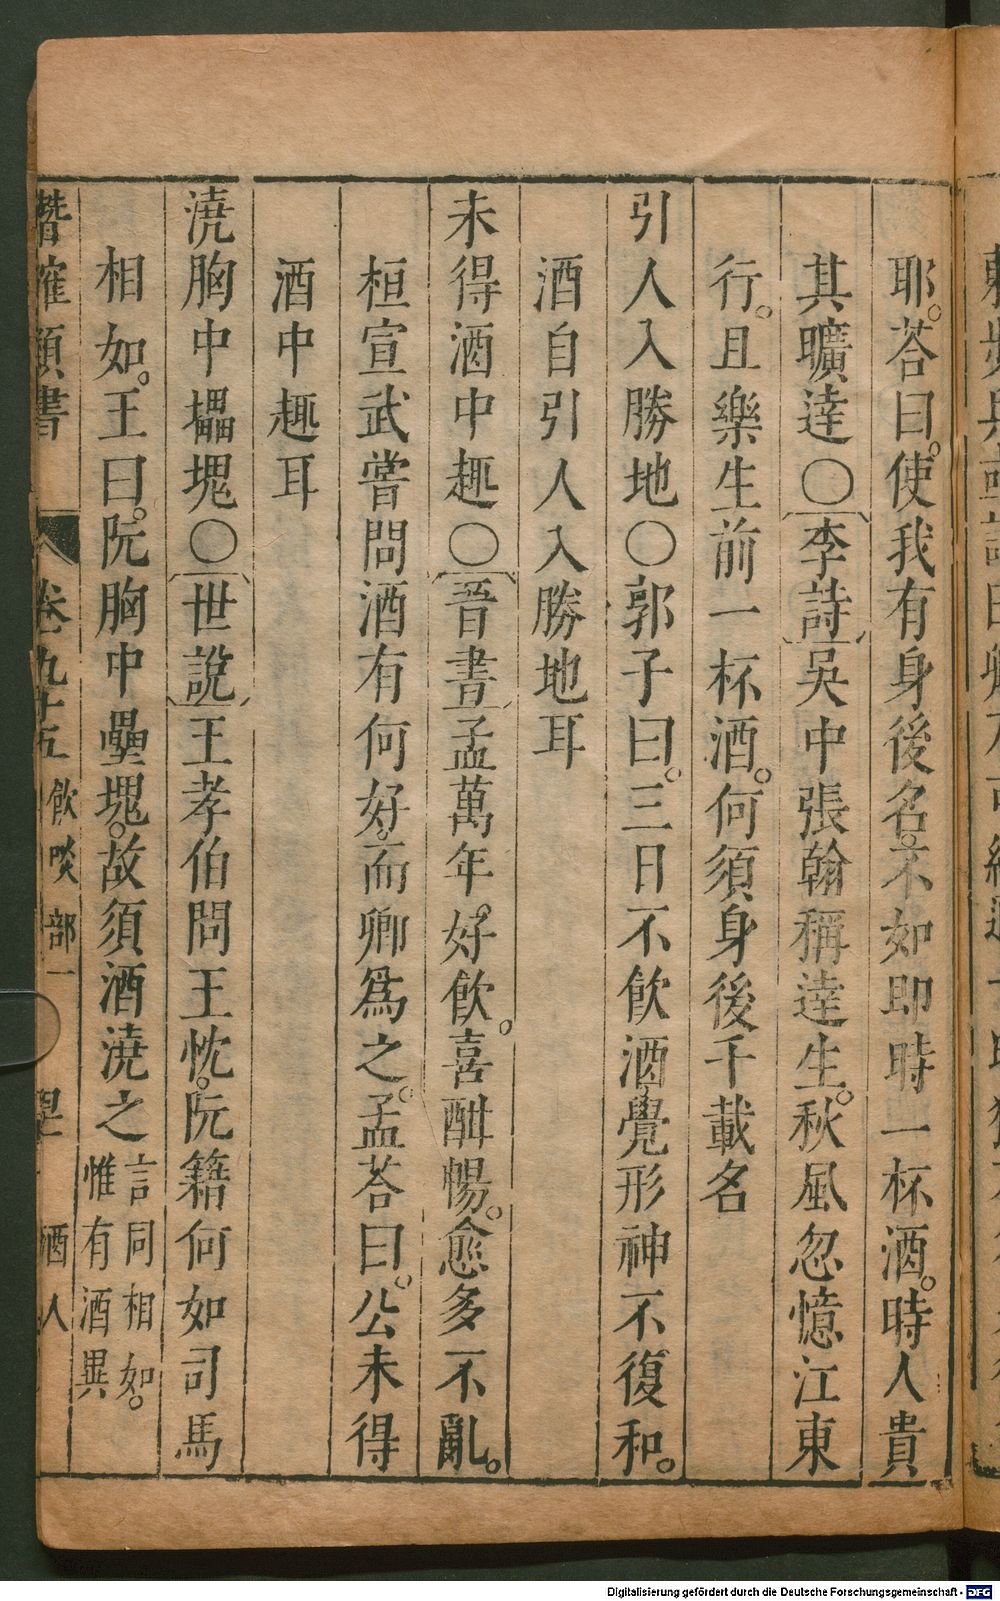 耶。荅曰。使我有身後名。不如即時一杯酒。時人貴
其曠達〇李詩吳中張翰稱達生。秋風忽憶江東
行。且樂生前一杯酒。何須身後千載名
引人入勝地〇郭子曰。三日不飮酒覺形神不復和。
酒自引人入勝地耳
未得酒中趣〇晉書孟萬年。好飮。喜酣暢。愈多不亂。
桓宣武嘗問酒有何好。而卿爲之。孟荅曰。公未得
酒中趣耳
澆胸中壘塊〇世說王孝伯問王忱。阮籍何如司馬
相如。王曰。阮胸中壘塊。故須酒澆之言同相如。
惟有酒異
潛確類書
卷九十五
飮啖部一
酒人
Digitalisierung gefördert durch die Deutsche Forschungsgemeinschaft - DFG